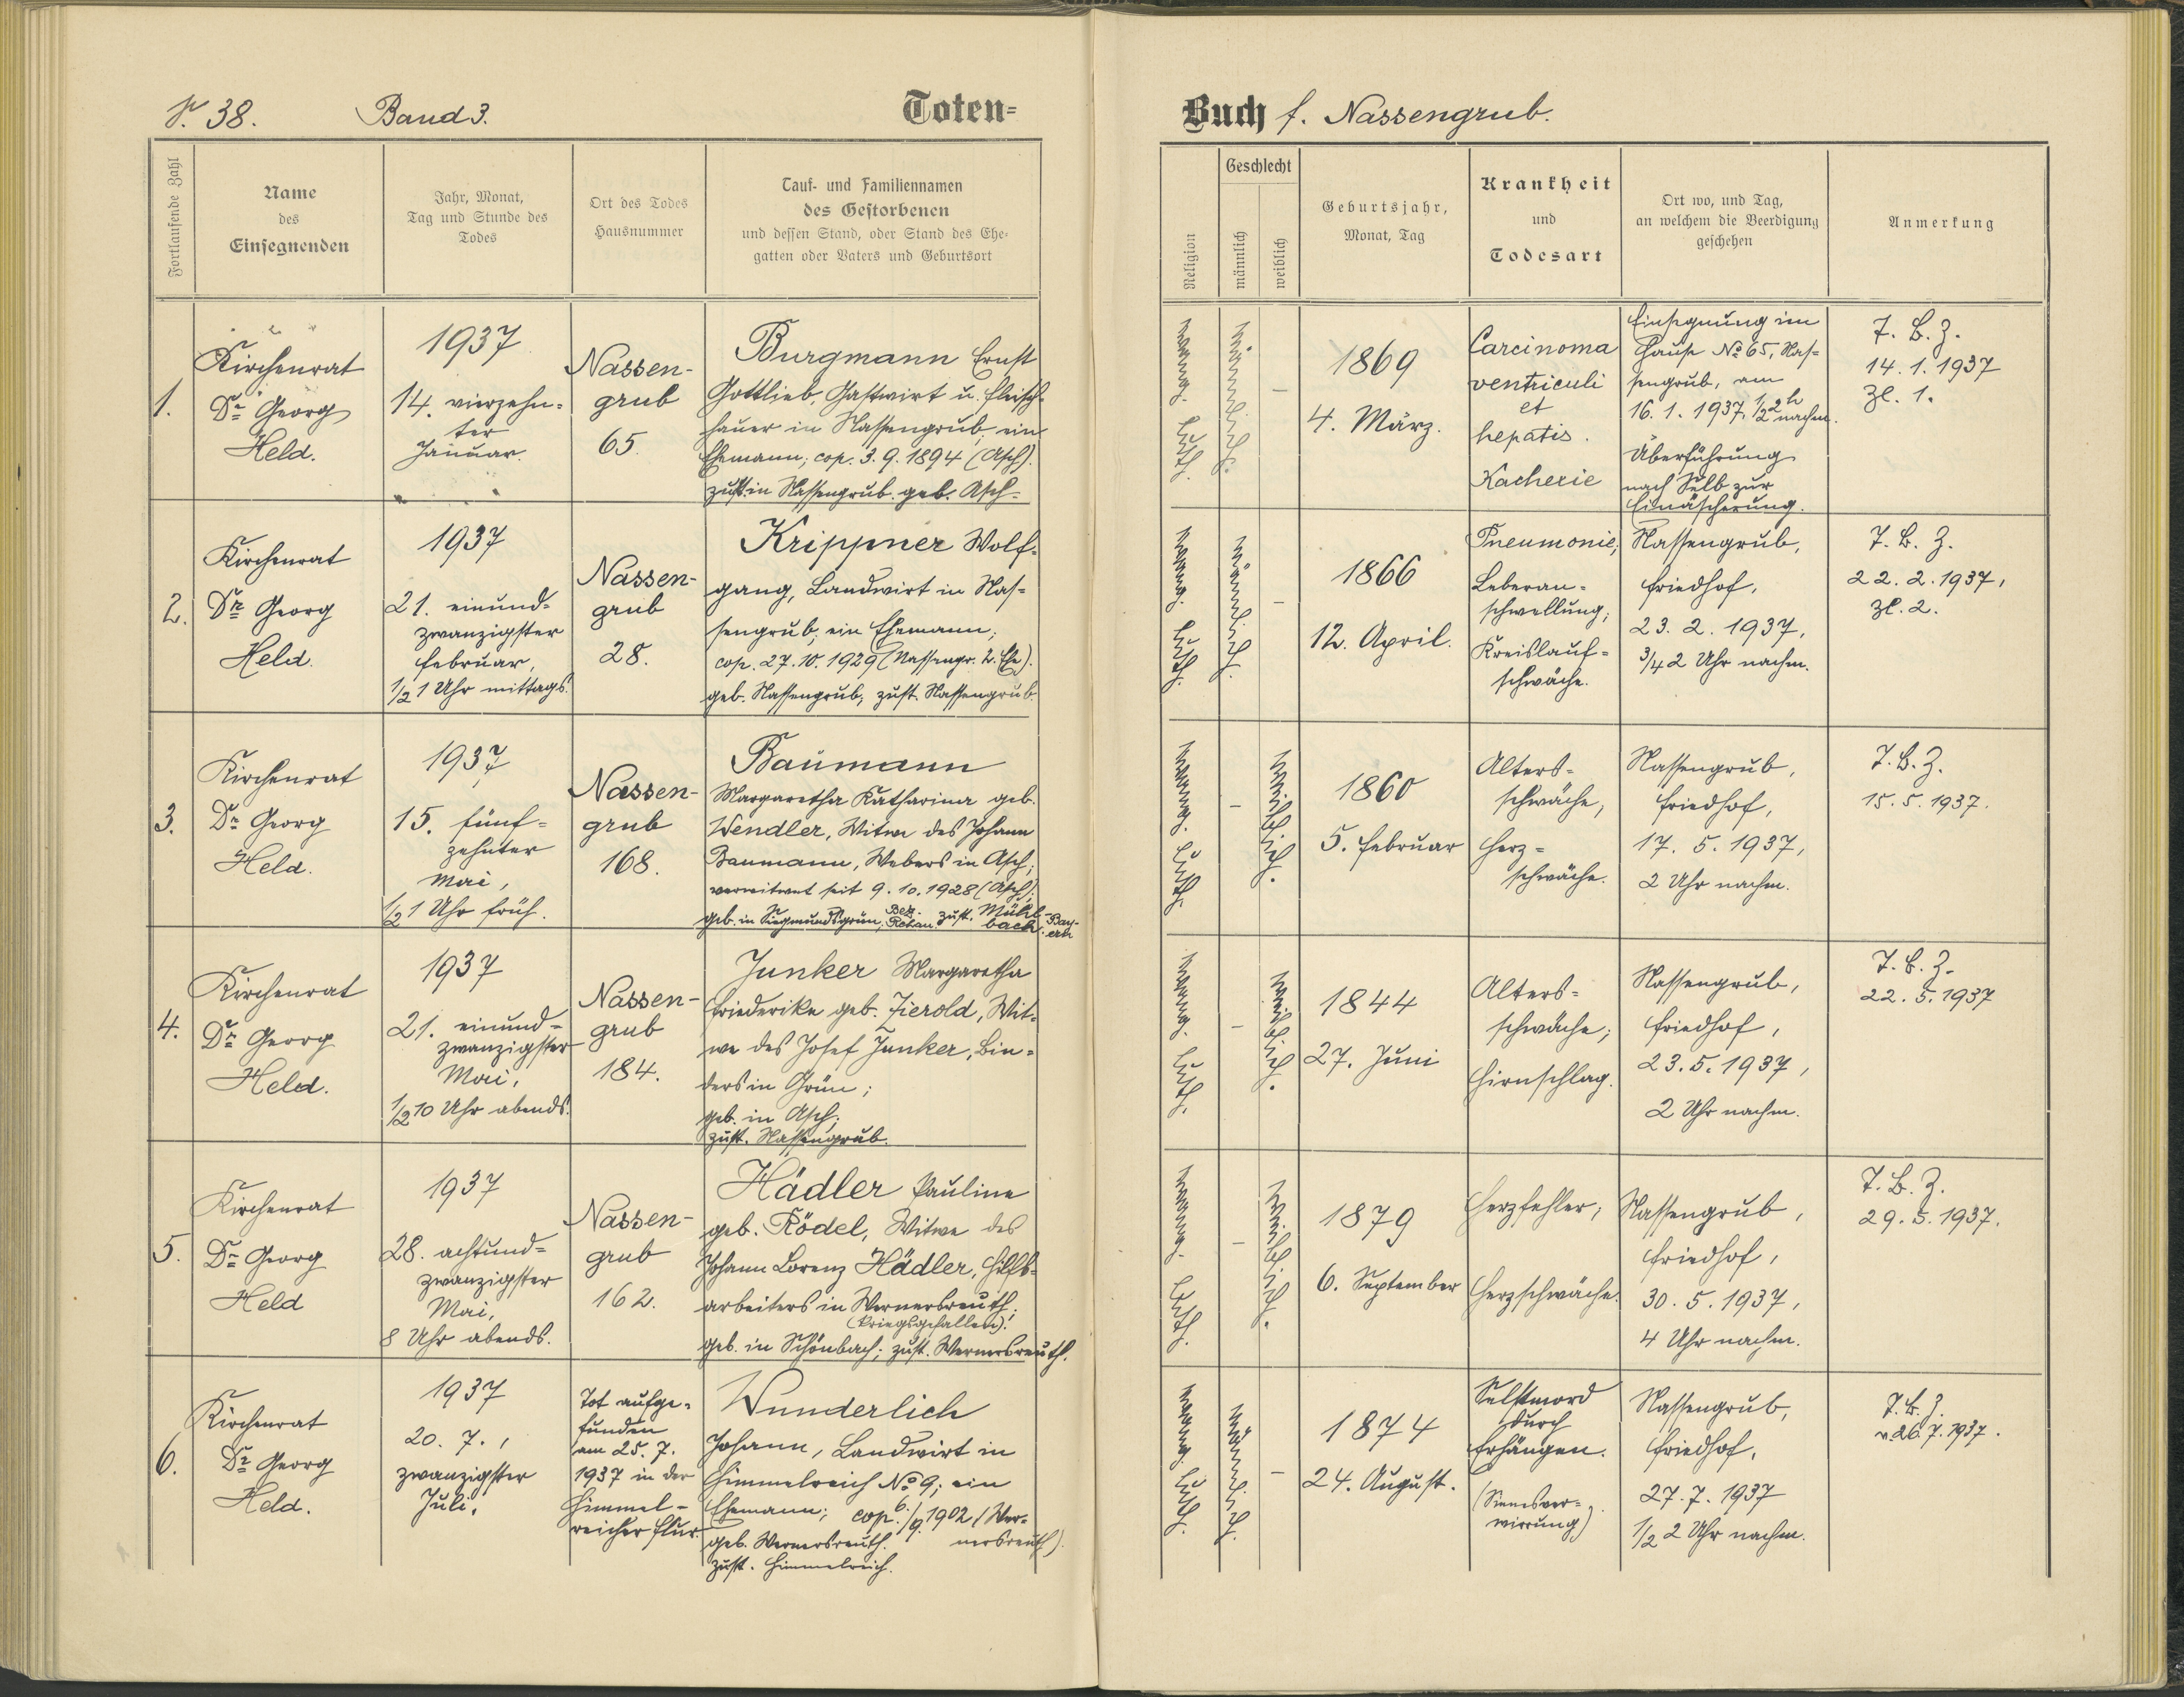 S. 38. Band 3. Toten-
Fortlaufende Zahl
Name
des
Einsegnenden
Jahr, Monat,
Tag und Stunde des
Todes
Ort des Todes
Hausnummer
Tauf- und Familiennamen
des Gestorbenen
und dessen Stand, oder Stand des Ehe-
gatten oder Vaters und Geburtsort
1.
Kirchenrat
Dr. Georg
Held.
1937
14. vierzehn-
ter
Januar.
Nassen-
grub
65.
Burgmann Ernst
Gottlieb, Gastwirt u. Fleisch-
hauer in Nassengrub, ein
Ehemann; cop. 3.9.1894 (Asch).
zust. in Nassengrub. geb. Asch.
2.
Kirchenrat
Dr. Georg
Held.
1937
21. einund-
zwanzigster
Februar,
1/2 1 Uhr mittags.
Nassen-
grub
28.
Krippner Wolf-
gang, Landwirt in Nas-
sengrub, ein Ehemann;
cop. 27.10.1929 (Nassengr. 2. Ehe).
geb. Nassengrub, zust. Nassengrub.
3.
Kirchenrat
Dr. Georg
Held.
1937
15. fünf-
zehnter
Mai,
1/2 1 Uhr früh.
Nassen-
grub
168.
Baumann
Margaretha Katharina geb.
Wendler, Witwe des Johann
Baumann, Webers in Asch;
verwitwet seit 9.10.1928 (Asch);
geb. in Siegmundsgrün, Bez. Rehau. zust. Mühlbach. Bayern
4.
Kirchenrat
Dr. Georg
Held.
1937
21. einund-
zwanzigster
Mai,
1/2 10 Uhr abends.
Nassen-
grub
184.
Junker Margaretha
Friederike geb. Zierold, Wit-
we des Josef Junker, Bin-
ders in Grün;
geb. in Asch;
zust. Nassengrub.
5.
Kirchenrat
Dr. Georg
Held
1937
28. achtund-
zwanzigster
Mai,
8 Uhr abends.
Nassen-
grub
162.
Hädler Pauline
geb. Rödel, Witwe des
Johann Lorenz Hädler, Hilfs-
arbeiters in Wernersreuth;
(Kriegsgefallen)!
geb. in Schönbach; zust. Wernersreuth.
6.
Kirchenrat
Dr. Georg
Held.
1937
20. 7.,
zwanzigster
Juli.
Tot aufge-
funden
am 25. 7.
1937 in der
Himmel-
reicher Flur.
Wunderlich
Johann, Landwirt in
Himmelreich No 9; ein
Ehemann; cop. 6./9. 1902 (Wer-
nersreuth).
geb. Wernersreuth.
zust. Himmelreich.
Buch f. Nassengrub.
Religion
Geschlecht
männlich
weiblich
Geburtsjahr,
Monat, Tag
Krankheit
und
Todesart
Ort wo, und Tag,
an welchem die Beerdigung
geschehen
Anmerkung
evang. luth.
männlich.
–
1869
4. März.
Carcinoma
ventriculi
et
hepatis.
Kachexie
Einsegnung im
Hause No 65, Nas-
sengrub, am
16.1.1937, 1/2 2h nachm.
Überführung
nach Selb zur
Einäscherung.
T. B. Z.
14.1.1937
Zl. 1.
evang. luth.
männlich.
–
1866
12. April.
Pneumonie;
Leberan-
schwellung;
Kreislauf-
schwäche.
Nassengrub,
Friedhof,
23.2.1937,
3/4 2 Uhr nachm.
T. B. Z.
22.2.1937,
Zl. 2.
evang. luth.
–
weiblich.
1860
5. Februar
Alters-
schwäche,
Herz-
schwäche.
Nassengrub,
Friedhof,
17. 5. 1937,
2 Uhr nachm.
T. B. Z.
15.5.1937.
evang. luth.
–
weiblich.
1844
27. Juni
Alters-
schwäche;
Hirnschlag.
Nassengrub,
Friedhof,
23.5.1937,
2 Uhr nachm.
T. B. Z.
22.5.1937
evang. luth.
–
weiblich.
1879
6. September
Herzfehler;
Herzschwäche.
Nassengrub,
Friedhof,
30.5.1937,
4 Uhr nachm.
T. B. Z.
29.5.1937.
evang. luth.
männlich.
–
1874
24. August.
Selbstmord
durch
Erhängen.
(Sinnesver-
wirrung)
Nassengrub,
Friedhof,
27.7.1937
1/2 2 Uhr nachm.
T. B. Z.
v. 26.7.1937.